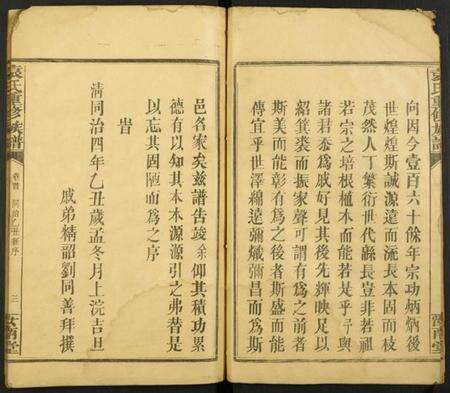 向因今壹百六十餘年宗功炳炳後
世煌煌斯誠源遠而流長本固而枝
茂然人丁繁衍世代緜長豈非若祖
若宗之培根植木而能若是乎予與
諸君忝為戚好見其後先輝映足以
紹箕裘而振家聲可謂有為之前者
斯美而能彰有為之後者斯盛而能
傳宜乎世澤綿遠彌熾彌昌而為斯
邑名家矣兹譜告竣余仰其積功累
德有以知其本木源源引之弗替是
以忘其固陋而為之序
旹
清同治四年乙丑歲孟冬月上浣吉旦
戚弟精韶劉同善拜撰
袁氏重修族譜
卷首
同治乙丑新序
三
汝南堂
袁氏重修族譜
汝南堂